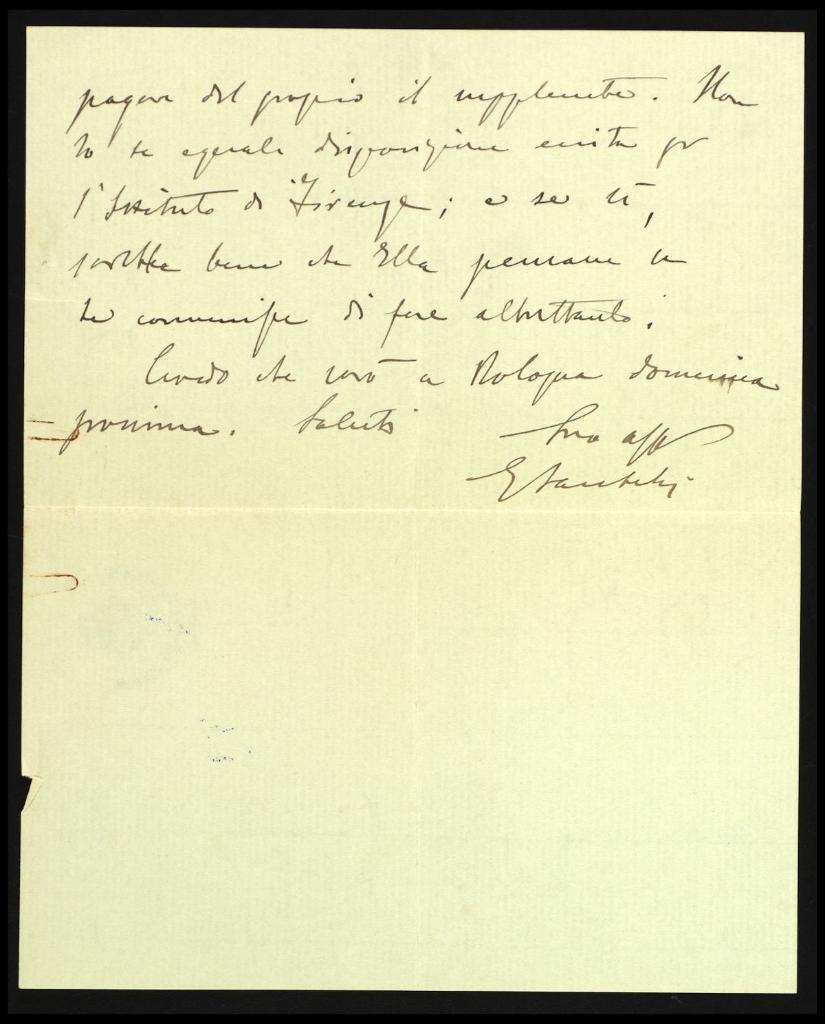 pagare del proprio il supplente. Non
so se eguale disposizione esista per
l'Istituto di Firenze; e se sì,
sarebbe bene che Ella pensasse a
di fare altrettanto.
Credo che sarò a Bologna domenica
prossima. Saluti
Suo aff